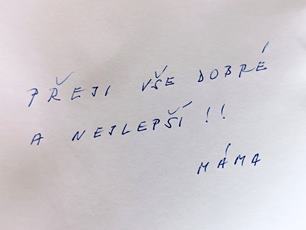 PŘEJI VŠE DOBRÉ
A NEJLEPŠÍ !!
MÁMA